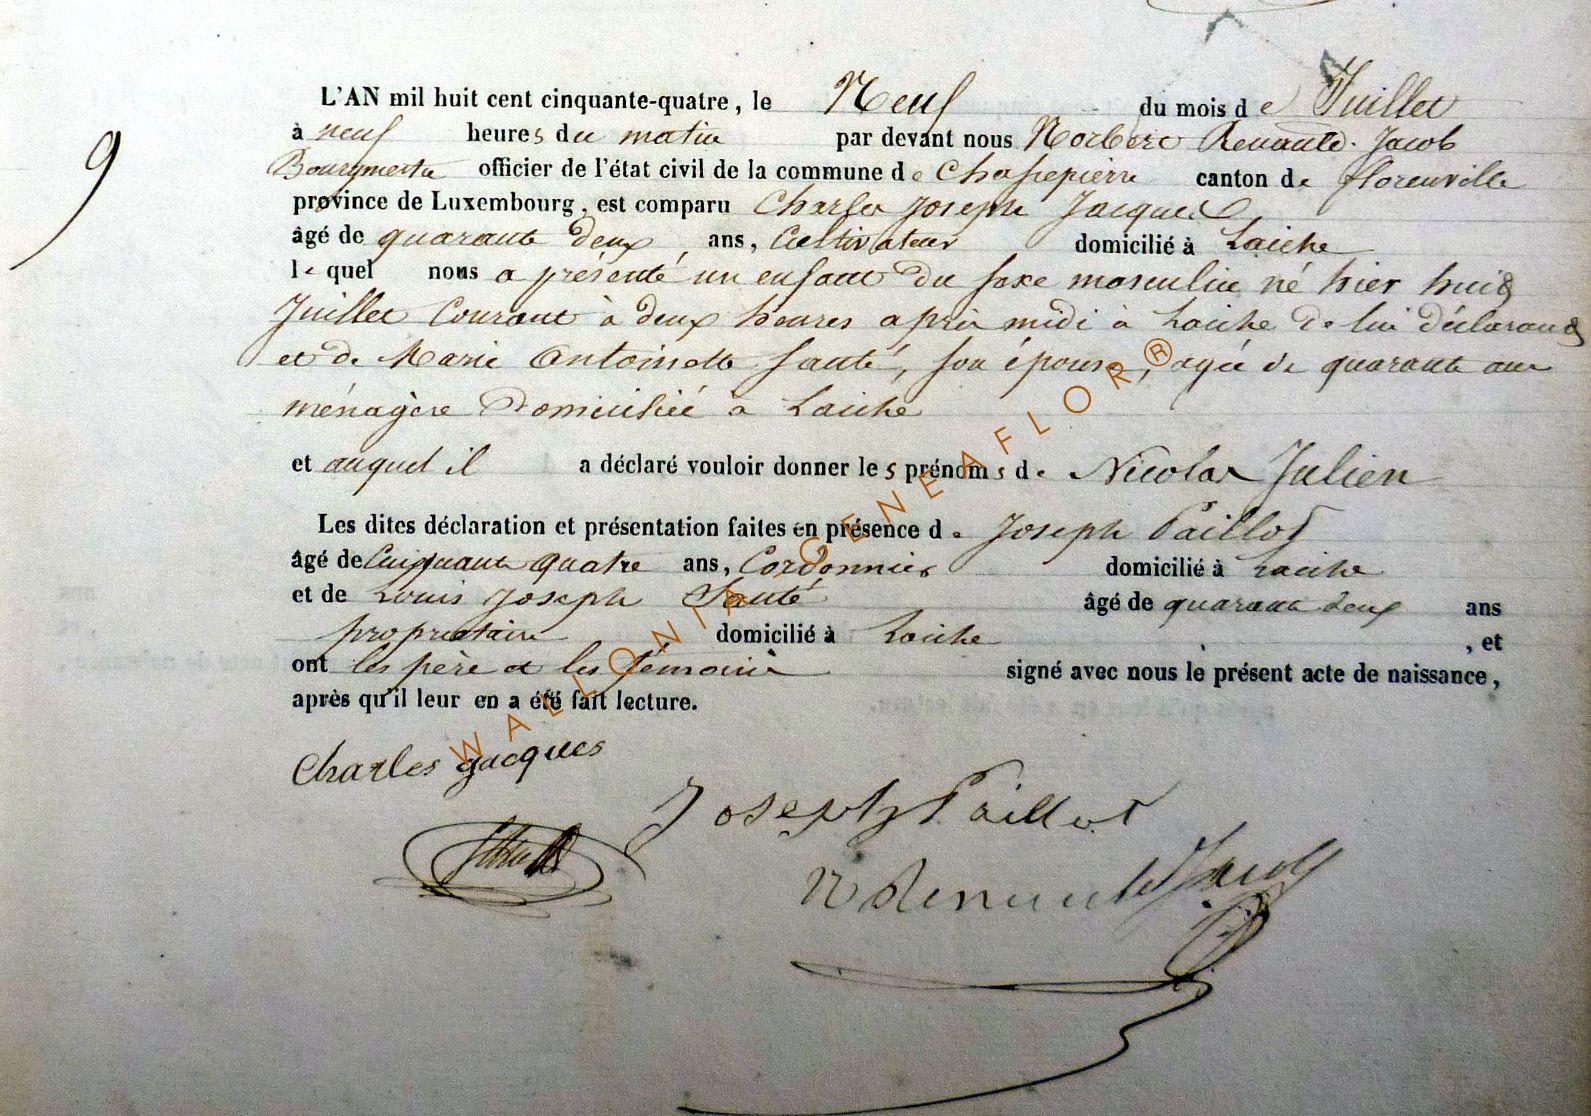 9
L'AN mil huit cent cinquante-quatre, le Neuf du mois de Juillet
à neuf heures du matin par devant nous Norbert Renauld. Jacob
Bourgmestre officier de l'état civil de la commune de Chassepierre canton de florenville
province de Luxembourg, est comparu Charles Joseph Jacques,
âgé de quarante deux ans, Cultivateur domicilié à Laiche
le quel nous a présenté un enfant du sexe masculin né hier huit
Juillet Courant à deux heures après midi à Laiche de lui déclarant
et de Marie Antoinette Santé, son épouse, agée de quarante ans
ménagère Domiciliée a Laiche
et auquel il a déclaré vouloir donner les prénoms de Nicolas Julien
Les dites déclaration et présentation faites en présence de Joseph Paillot
âgé de Cinquante quatre ans, Cordonnier domicilié à Laiche
et de Louis Joseph Santé âgé de quarante deux ans
propriétaire domicilié à Laiche , et
ont les père et les témoins signé avec nous le présent acte de naissance,
après qu'il leur en a été fait lecture.
Charles Jacques
Joseph Paillot
N Renauld Jacob
WALLONIA GENEAFLOR®